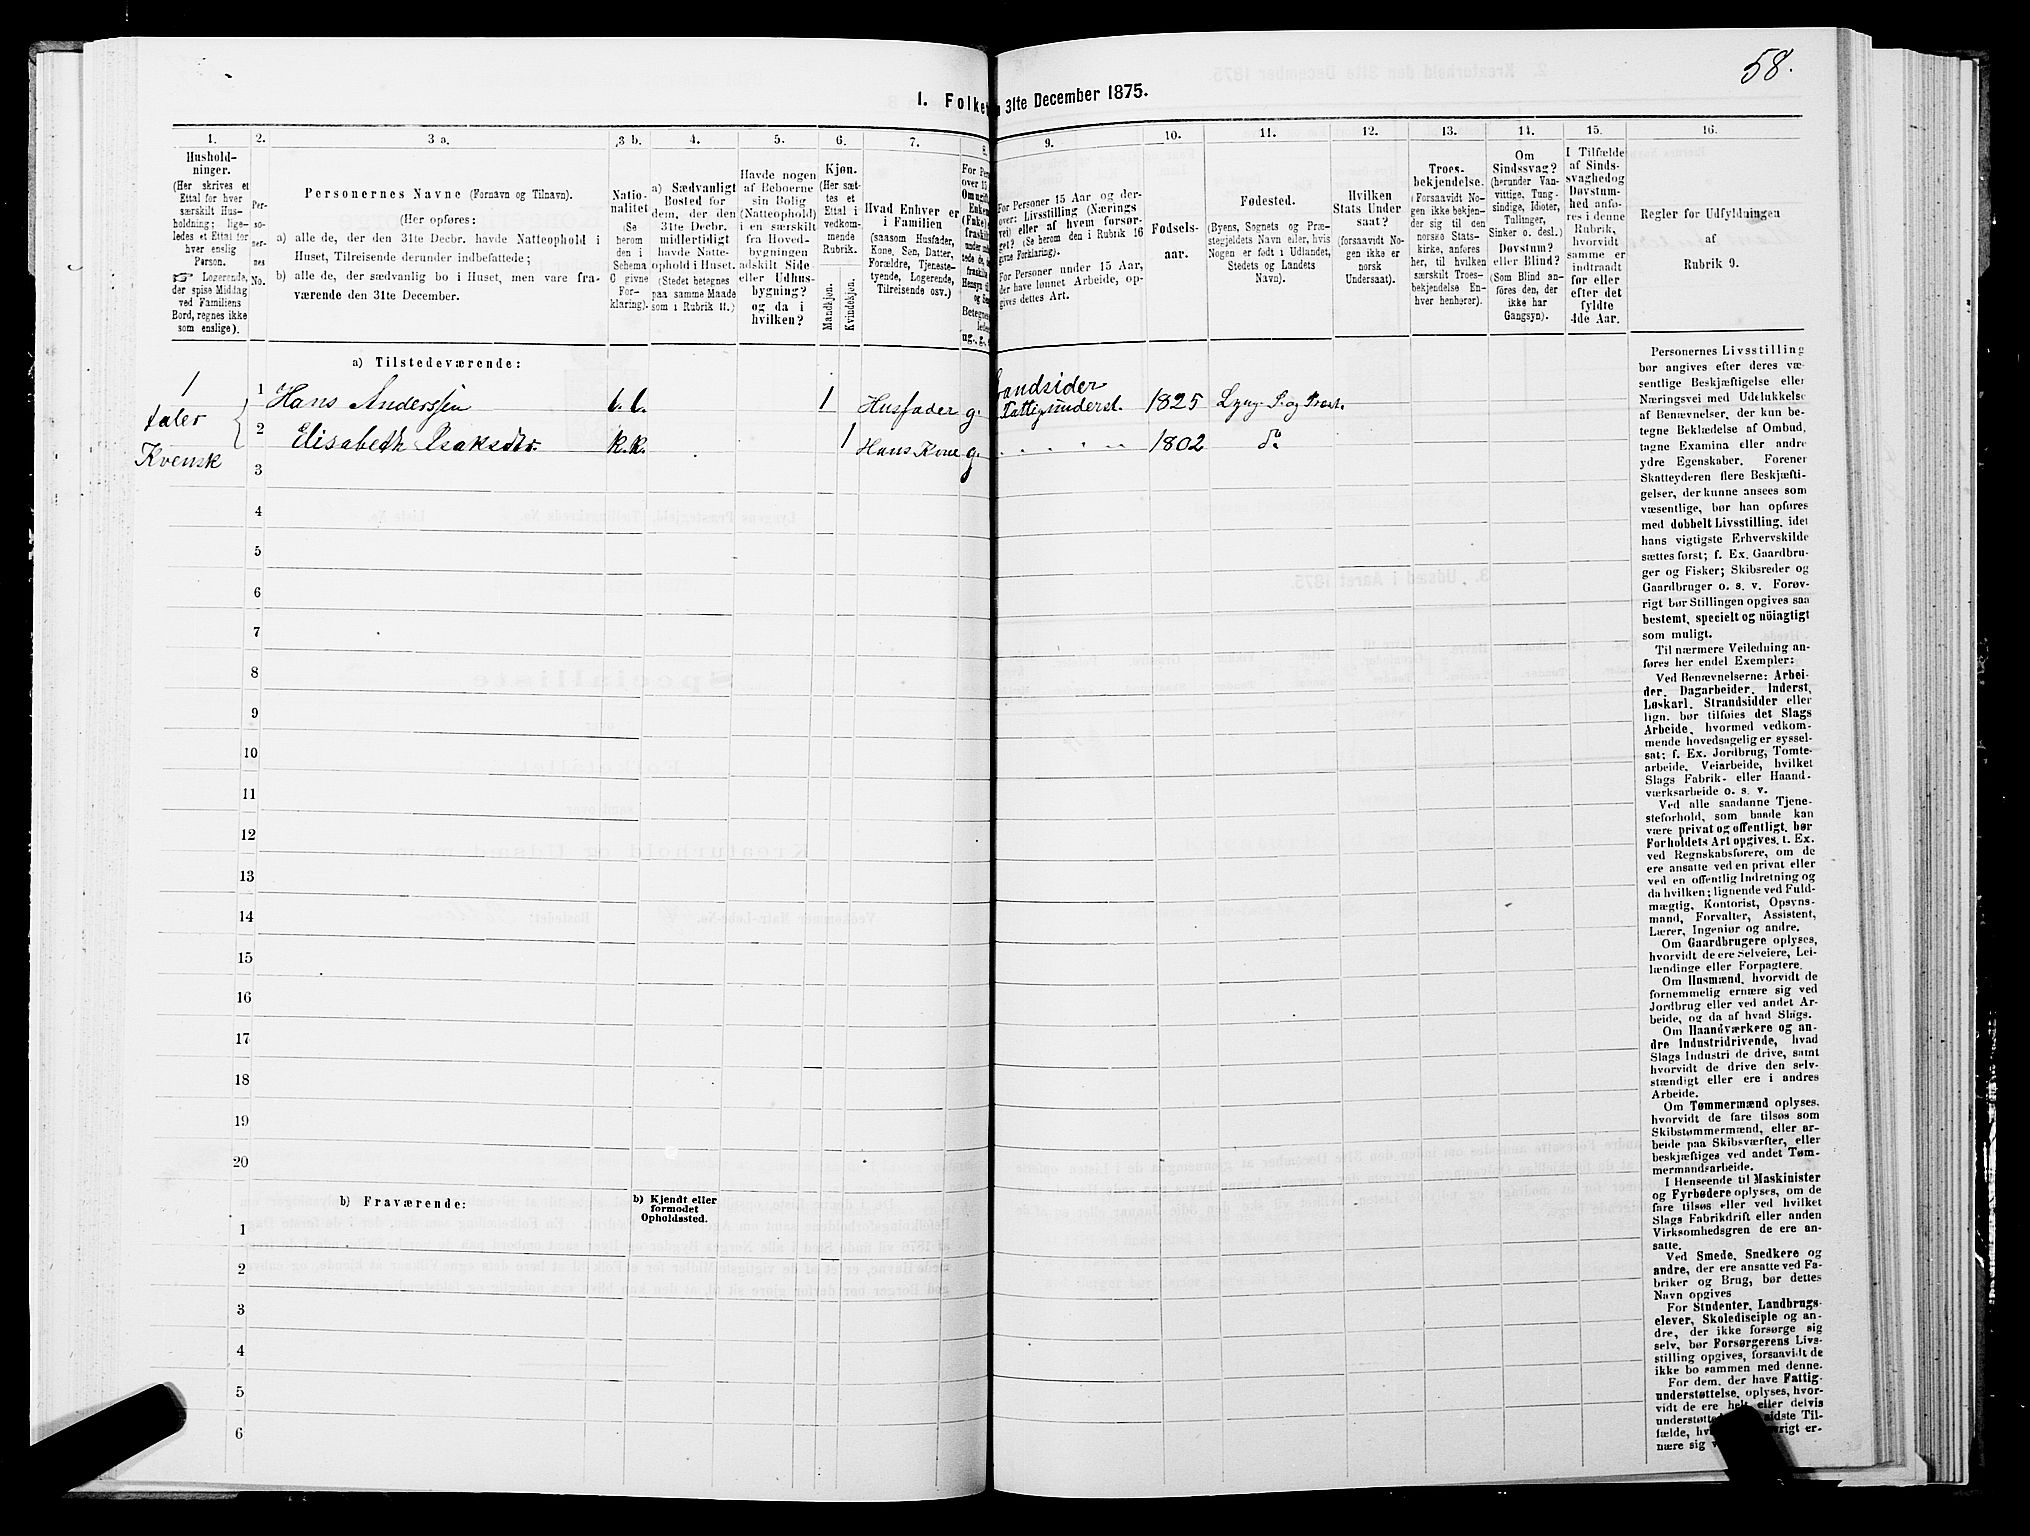 58.
1. Folket
31te December 1875.
1.
2.
3 a.
3 b.
4.
5.
6.
7.
8.
9.
10.
11.
12.
13.
14.
15.
16.
Hushold-
ninger.
(Her skrives et
Ettal for hver
særskilt Hus-
holdning; lige-
ledes et Ettal for
hver enslig
Person.
☞ Logerende,
der spise Middag
ved Familiens
Bord, regnes ikke
som enslige).
Per-
so-
ner-
nes
No.
Personernes Navne (Fornavn og Tilnavn).
(Her opføres:
a) alle de, der den 31te Decbr. havde Natteophold i
Huset, Tilreisende derunder indbefattede;
b) alle de, der sædvanlig bo i Huset, men vare fra-
værende den 31te December.
Natio-
nalitet
(Se
herom
den i
Schema
C givne
For-
klaring).
a) Sædvanligt
Bosted for
dem, der den
31te Decbr.
midlertidigt
havde Natte-
ophold i Huset.
(Stedet betegnes
paa samme Maade
som i Rubrik 11.)
Havde nogen
af Beboerne
sin Bolig
(Natteophold)
i en særskilt
fra Hoved-
bygningen
adskilt Side-
eller Udhus-
bygning?
og da i
hvilken?
Kjøn.
(Her sæt-
tes et
Ettal i
vedkom-
mende
Rubrik.
Mandkjøn.
Kvindekjøn.
Hvad Enhver er
i Familien
(saasom Husfader,
Kone, Søn, Datter,
Forældre, Tjeneste-
tyende, Logerende,
Tilreisende osv.).
For Personer 15 Aar og der-
over: Livsstilling (Nærings-
vei) eller af hvem forsør-
get? (Se herom den i Rubrik 16
givne Forklaring).
For Personer under 15 Aar,
der have lønnet Arbeide, op-
gives dettes Art.
Fødsels-
aar.
Fødested.
(Byens, Sognets og Præ-
stegjeldets Navn eller, hvis
Nogen er født i Udlandet,
Stedets og Landets
Navn).
Hvilken
Stats Under-
saat?
(forsaavidt No-
gen ikke er
norsk
Undersaat).
Troes-
bekjendelse.
(Forsaavidt No-
gen ikke bekjen-
der sig til den
norske Stats-
kirke, anføres
her, til hvilken
særskilt Troes-
bekjendelse En-
hver henhører).
Om
Sindssvag?
(herunder Van-
vittige, Tung-
sindige, Idioter,
Tullinger,
Sinker o. desl.)
Døvstum?
eller Blind?
(Som Blind an-
føres den, der
ikke har
Gangsyn).
I Tilfælde
af Sinds-
svaghed og
Døvstum-
hed anfø-
res i denne
Rubrik,
hvorvidt
samme er
indtraadt
før eller
efter det
fyldte
4de Aar.
Regler for Udfyldningen
af
Rubrik 9.
a) Tilstedeværende:
1
taler
Kvensk
1 Hans Anderssen l.l. 1 Husfader g. Fattigunderst. 1825 Lyng S. og Præst.
2 Elisabeth Isaksdtr. k.k. 1 Hans Kone g. 1802 do
3
4
5
6
7
8
9
10
11
12
13
14
15
16
17
18
19
20
b) Fraværende:
b) Kjendt eller
formodet
Opholdssted.
1
2
3
4
5
6
Personernes Livsstilling
bør angives efter deres væ-
sentlige Beskjæftigelse eller
Næringsvei med Udelukkelse
af Benævnelser, der kun be-
tegne Beklædelse af Ombud,
tagne Examina eller andre
ydre Egenskaber. Forener
Skatteyderen flere Beskjæfti-
gelser, der kunne ansees som
væsentlige, bør han opføres
med dobbelt Livsstilling, idet
hans vigtigste Erhvervskilde
sættes først; f. Ex. Gaardbru-
ger og Fisker; Skibsreder og
Gaardbruger o. s. v. Forøv-
rigt bør Stillingen opgives saa
bestemt, specielt og nöiagtigt
som muligt.
Til nærmere Veiledning an-
føres her endel Exempler:
Ved Benævnelserne: Arbei-
der, Dagarbeider, Inderst,
Løskarl, Strandsidder eller
lign. bør tilføies det Slags
Arbeide, hvormed vedkom-
mende hovedsagelig er syssel-
sat; f. Ex. Jordbrug, Tomte-
arbeide, Veiarbeide, hvilket
Slags Fabrik- eller Haand-
værksarbeide o. s. v.
Ved alle saadanne Tjene-
steforhold, som baade kan
være privat og offentligt, bør
Forholdets Art opgives, f. Ex.
ved Regnskabsførere, om de
ere ansatte ved en privat eller
ved en offentlig Indretning og
da hvilken; lignende ved Fuld-
mægtig, Kontorist, Opsyns-
mand, Forvalter, Assistent,
Lærer, Ingeniør og andre.
Om Gaardbrugere oplyses,
hvorvidt de ere Selveiere, Lei-
lændinge eller Forpagtere.
Om Husmænd, hvorvidt de
fornemmelig ernære sig ved
Jordbrug eller ved andet Ar-
beide, og da af hvad Slags.
Om Haandværkere og an-
dre Industridrivende, hvad
Slags Industri de drive, samt
hvorvidt de drive den selv-
stændigt eller ere i andres
Arbeide.
Om Tømmermænd oplyses,
hvorvidt de fare tilsøs som
Skibstømmermænd, eller ar-
beide paa Skibsværfter, eller
beskjæftiges ved andet Tøm-
mermandsarbeide.
I Henseende til Maskinister
og Fyrbødere oplyses, om de
fare tilsøs eller ved hvilket
Slags Fabrikdrift eller anden
Virksomhedsgren de ere an-
satte.
Ved Smede, Snedkere og
andre, der ere ansatte ved Fa-
briker og Brug, bør dettes
Navn opgives
For Studenter, Landbrugs-
elever, Skoledisciple og an-
dre, der ikke forsørge sig
selv, bør Forsørgerens Livs-
stilling opgives, forsaavidt de
ikke bo sammen med denne.
For dem, der have Fattig-
understøttelse, oplyses, hvor-
vidt de ere helt eller delvis
sidste Til-
fælde,
nære sig